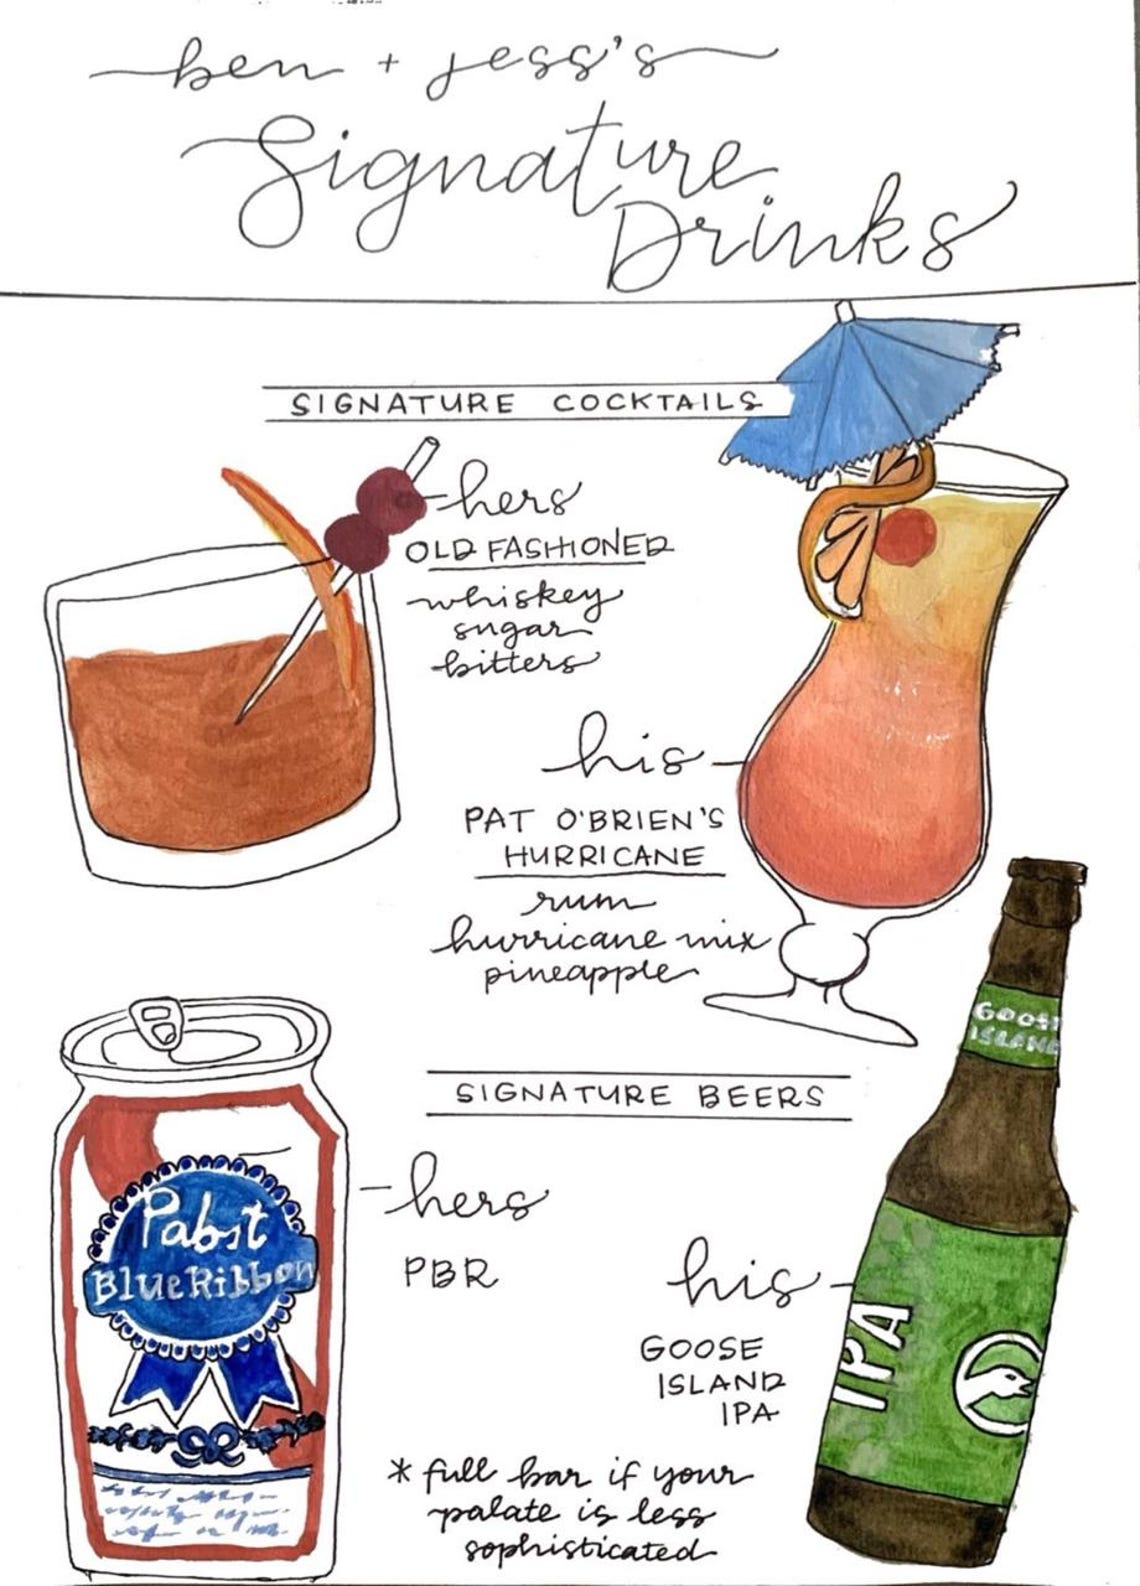 ben + jess's
Signature
Drinks
SIGNATURE COCKTAILS
hers
OLD FASHIONED
whiskey
sugar
bitters
his
PAT O'BRIEN'S
HURRICANE
rum
hurricane mix
pineapple
GOOSE
ISLAND
SIGNATURE BEERS
hers
PBR
Pabst
Blue Ribbon
his
GOOSE
ISLAND
IPA
IPA
* full bar if your
palate is less
sophisticated